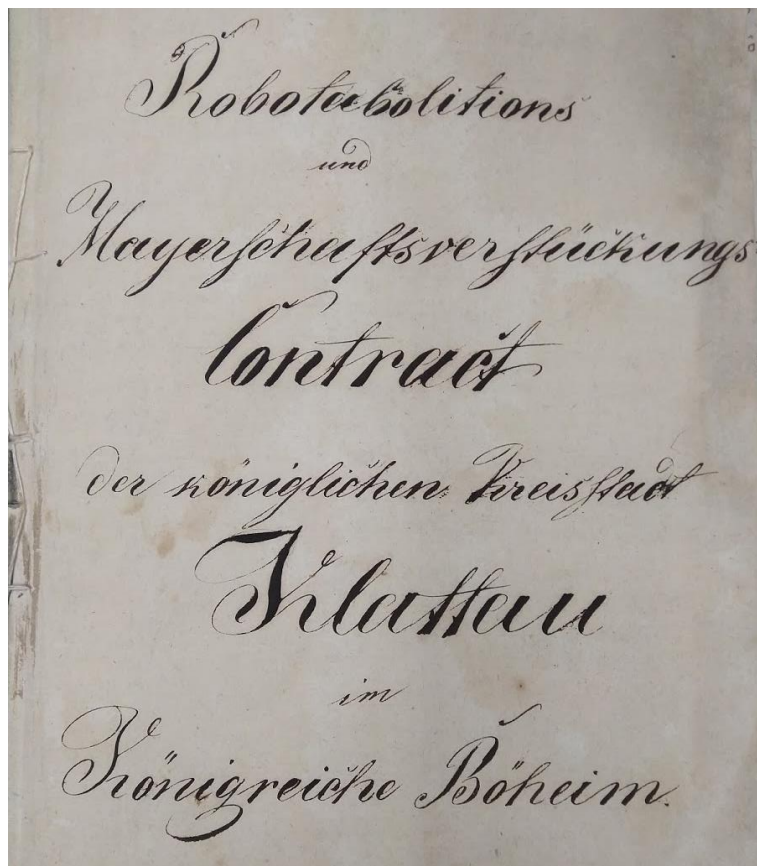 Robotabolitions
und
Mayerschaftsverstückungs
Contract
der königlichen Kreisstadt
Klattau
im
Königreiche Böheim.